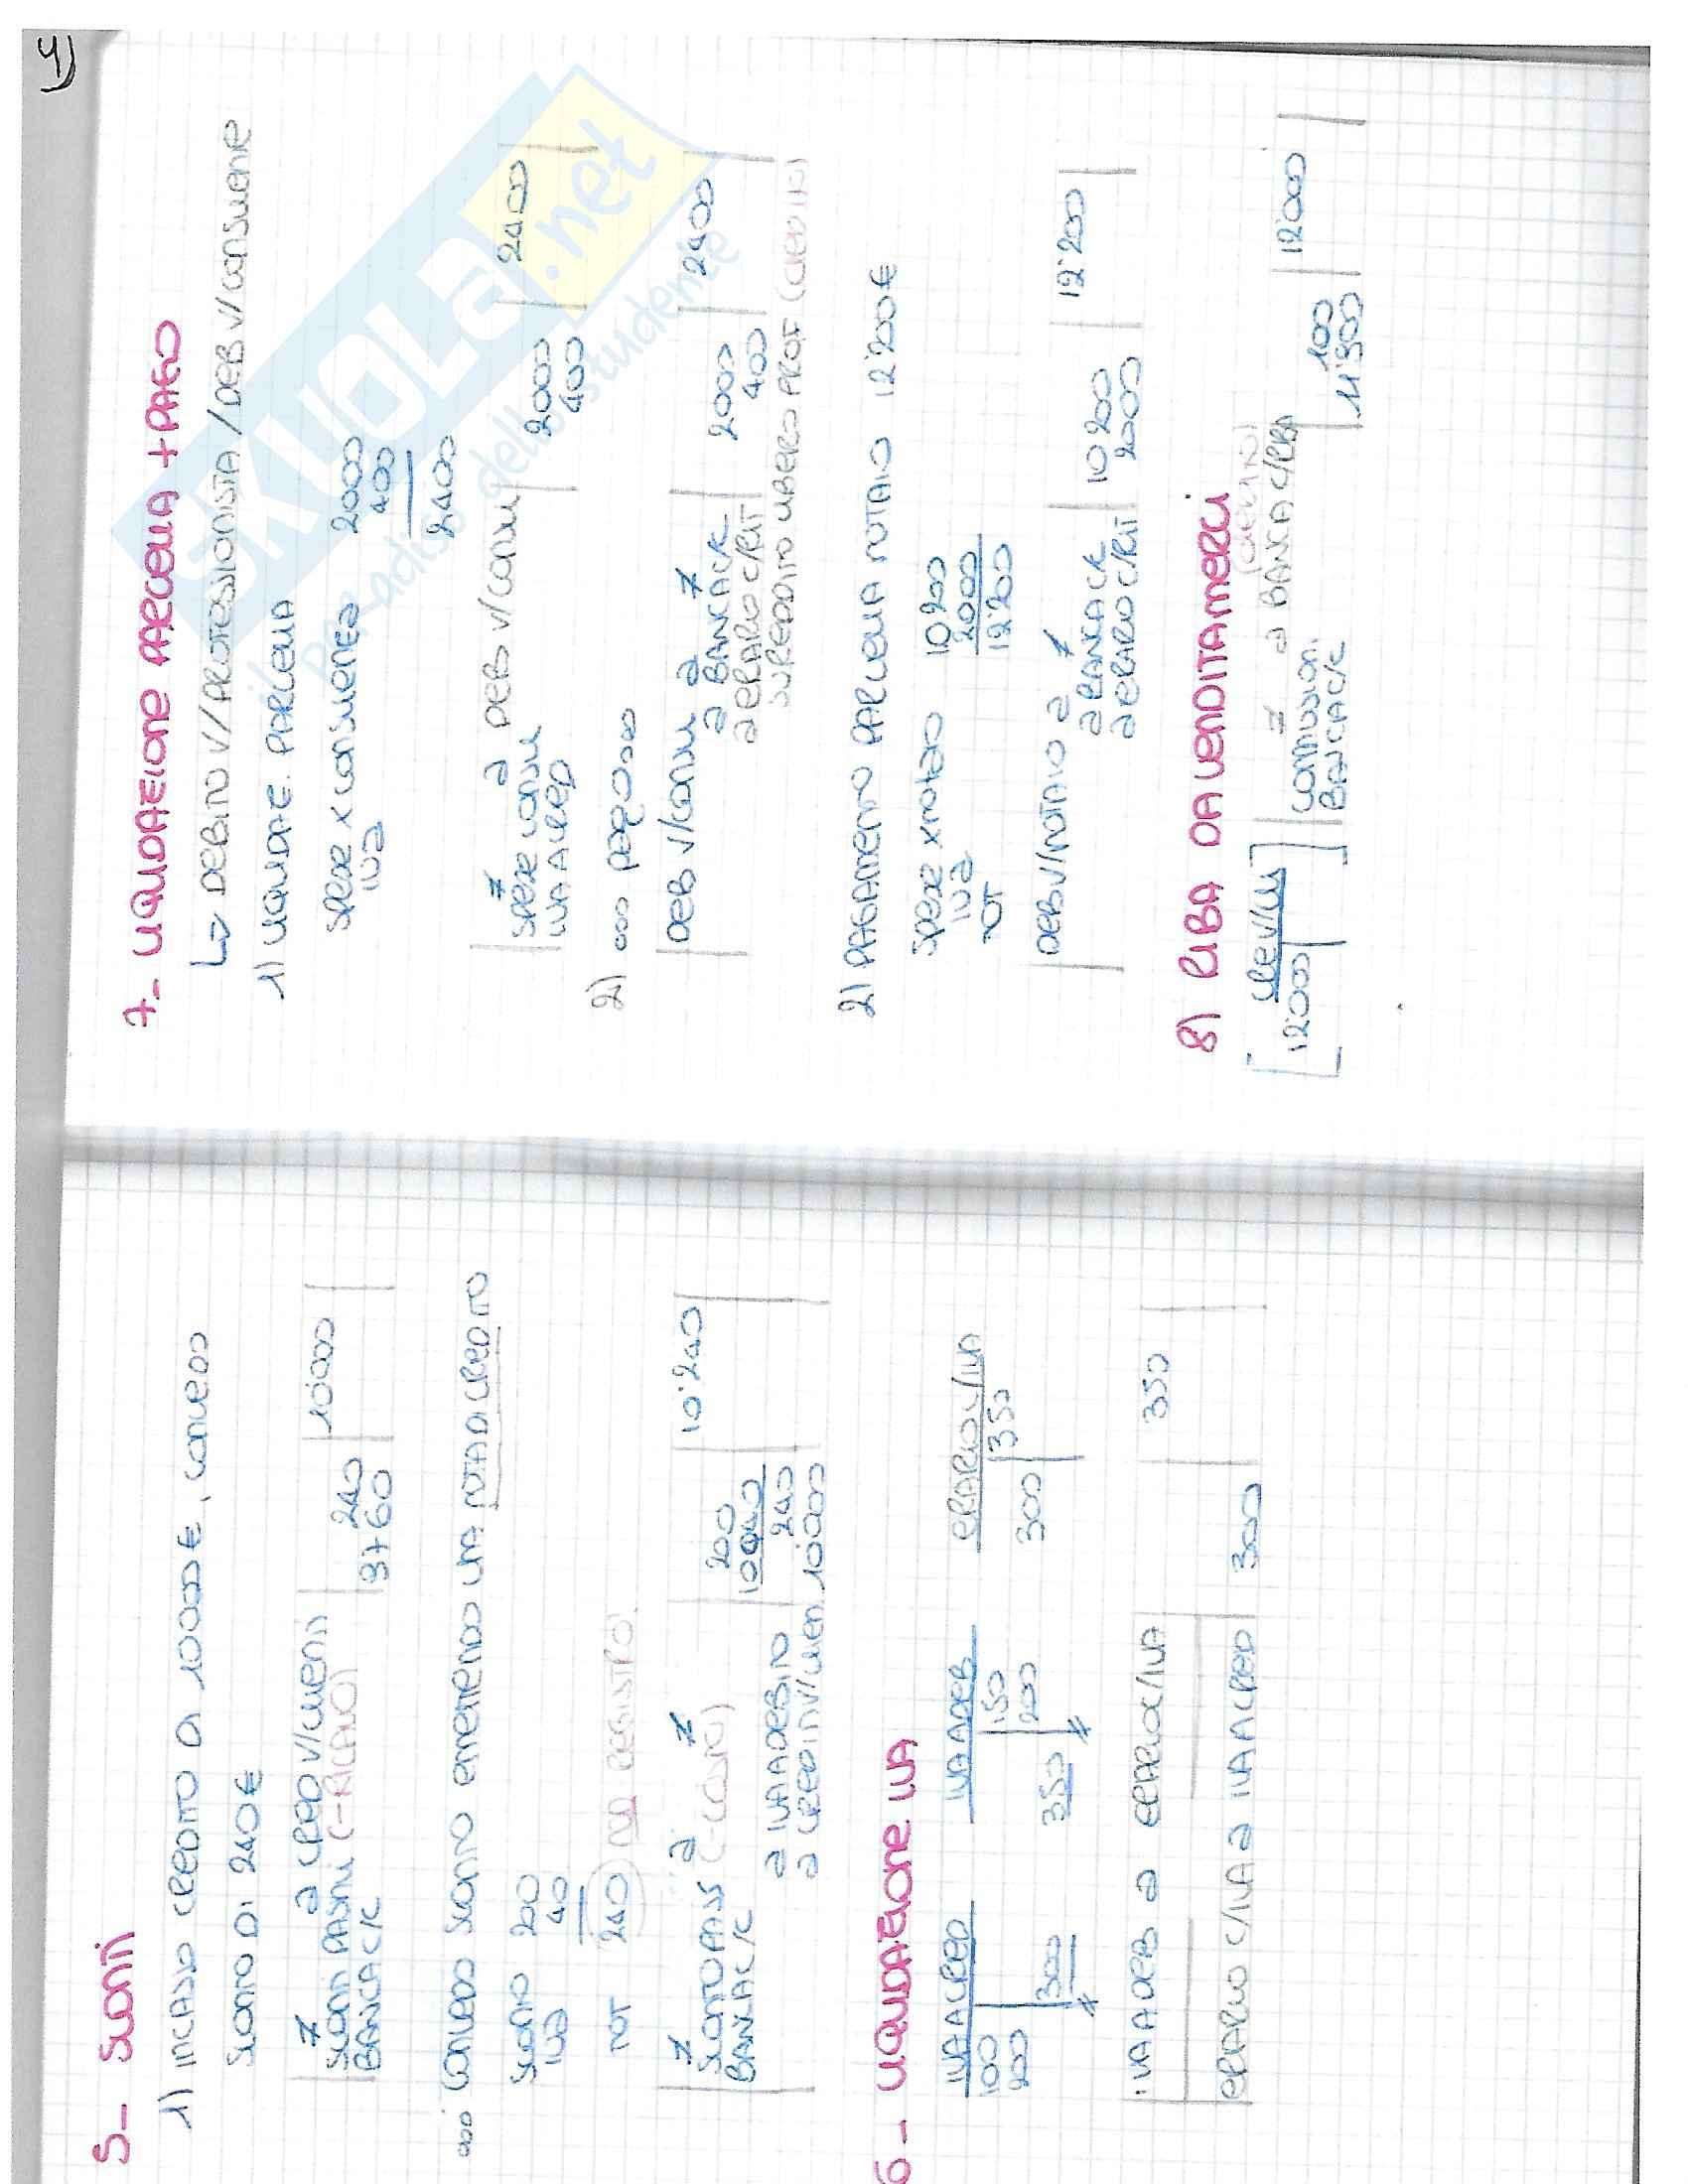 4)
5- SCONTI
1) INCASSO CREDITO DI 10000€, CONCEDO
SCONTO DI 240€
≠ a CRED V/CLIENTI 10000
SCONTI PASSIVI (-RICAVO) 240
BANCA C/C 9760
CONCEDO SCONTO EMETTENDO UNA NOTA DI CREDITO
SCONTO 200
IVA 40
TOT 240
REGISTRO!
≠ a ≠ 10'240
SCONTO PASS (-COSTO) 200
BANCA C/C 10040
a IVA A DEBITO 240
a CREDITI V/CLIEN. 10'000
6- LIQUIDAZIONE IVA
IVA A CRED IVA A DEB ERARIO C/IVA
100 150 350
200 300 200 300
350
IVA A DEB a ERARIO C/IVA 350
ERARIO C/IVA a IVA A CRED 300
7- LIQUIDAZIONE PARCELLA + PAGO
↳ DEBITO V/PROFESSIONISTA / DEB V/CONSULENTE
1) LIQUIDAZ. PARCELLA
SPESE X CONSULENZA 2000
IVA 400
2400
≠ a DEB V/CONSU 2400
SPESE CONSUL 2000
IVA A CRED 400
2) ooo PAGO ooo
DEB V/CONSU a ≠ 2400
a BANCA C/C 2000
a ERARIO C/RIT 400
SU REDDITO LIBERO PROF (CREDITO)
2) PAGAMENTO PARCELLA NOTAIO 12'200€
SPESE X NOTAIO 10200
IVA 2000
TOT 12'200
DEB V/NOTAIO a ≠ 12'200
a BANCA C/C 10200
a ERARIO C/RIT 2000
8) RIBA DA VENDITA MERCI
CRE V/CLI
12000
≠ a BANCA C/RIBA 12'000
COMMISSIONI 100
BANCA C/C 11'900
SKUOLA.net
il paradiso dello studente